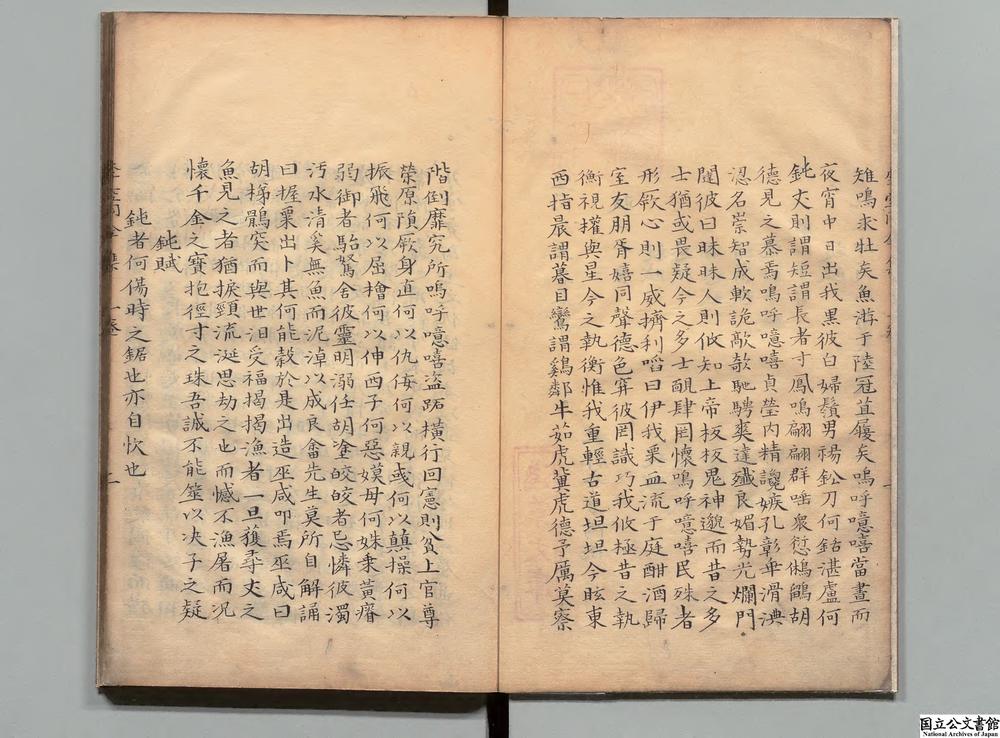 雉鳴求牡矣魚游于陸冠苴屨矣嗚呼噫嘻當晝而
夜宵中日出我黑彼白婦鬚男裼鈆刀何銛湛盧何
鈍丈則謂短謂長者寸鳳鳴翩翩群嗤衆愆鵂鶹胡
德見之慕焉嗚呼噫嘻貞瑩内精讒嫉孔彰垂滑淟
涊名崇智成軟詭歊欹馳騁爽達殲良媚勢光爛門
閭彼曰昧昧人則攸知上帝板板鬼神邈而昔之多
士猶或畏疑今之多士靦肆罔懷嗚呼噫嘻民殊者
形厥心則一威擠利啗曰伊我栗血流于庭酣酒歸
室友朋胥嬉同聲德色穽彼罔識巧我攸極昔之執
衡視權與星今之執衡惟我重輕古道坦坦今眩東
西指晨謂暮目鸞謂鷄鄰牛茹虎葷虎德予厲莫察
階倒靡究所嗚呼噫嘻盜跖橫行回憲則貧上官尊
榮原隕厥身直何以仇侮何以親彧何以蘱操何以
振飛何以屈檜何以伸西子何惡嫫母何姝乗黃瘠
弱御者駘駑舍彼靈明溺任胡塗皎皎者忌憐彼濁
汚水清奚無魚而泥淖以成良畬先生莫所自解誦
曰握粟出卜其何能穀於是出造巫咸叩焉巫咸曰
胡梯鶻突而與世汨受福揭揭漁者一旦獲尋丈之
魚見之者猶捩頸流涎思劫之也而憾不漁屠而况
懷千金之寶抱徑寸之珠吾誠不能筮以决子之疑
鈍賦
鈍者何傷時之鋸也亦自忺也
国立公文書館
National Archives of Japan